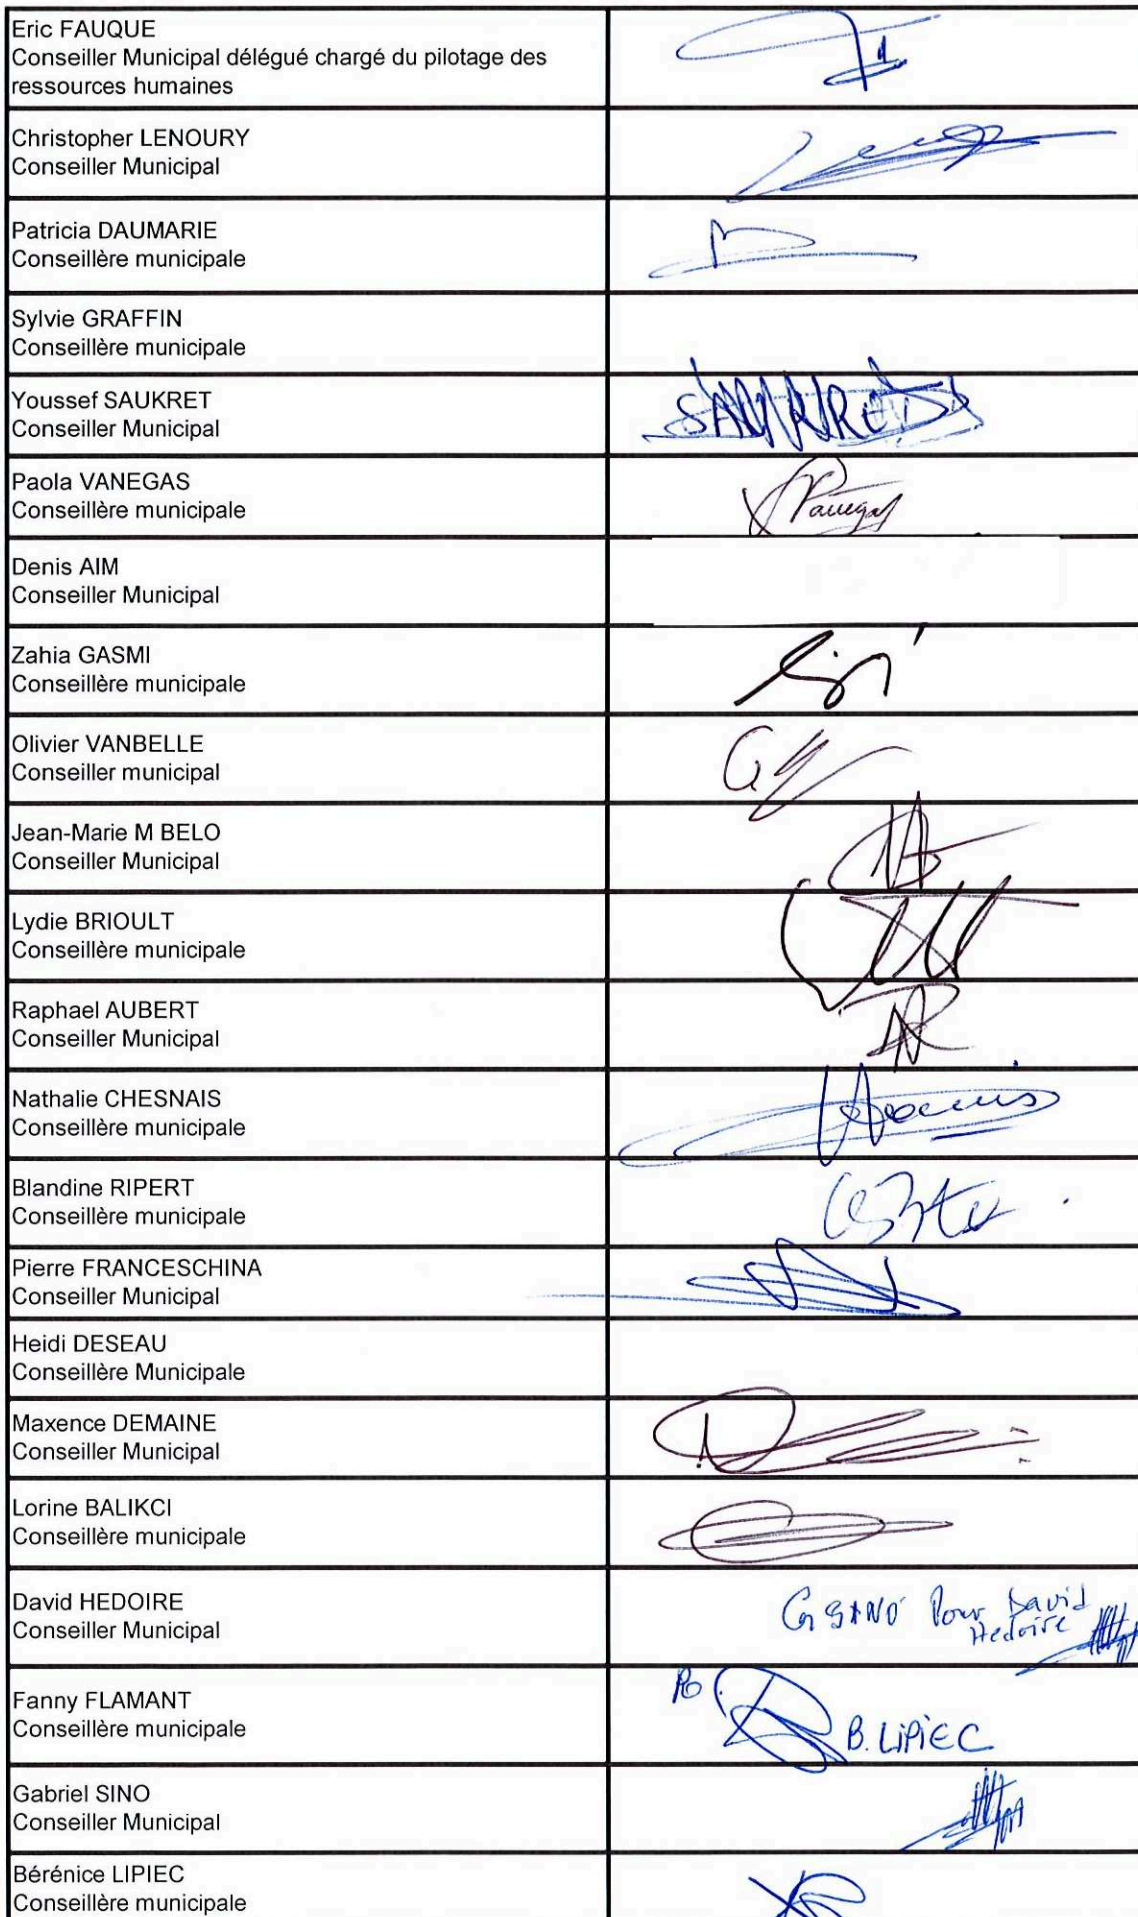 Eric FAUQUE
Conseiller Municipal délégué chargé du pilotage des
ressources humaines
Christopher LENOURY
Conseiller Municipal
Patricia DAUMARIE
Conseillère municipale
Sylvie GRAFFIN
Conseillère municipale
Youssef SAUKRET
Conseiller Municipal
SAUKRET
Paola VANEGAS
Conseillère municipale
Denis AIM
Conseiller Municipal
Zahia GASMI
Conseillère municipale
Olivier VANBELLE
Conseiller municipal
Jean-Marie M BELO
Conseiller Municipal
Lydie BRIOULT
Conseillère municipale
Raphael AUBERT
Conseiller Municipal
Nathalie CHESNAIS
Conseillère municipale
Blandine RIPERT
Conseillère municipale
Pierre FRANCESCHINA
Conseiller Municipal
Heidi DESEAU
Conseillère Municipale
Maxence DEMAINE
Conseiller Municipal
Lorine BALIKCI
Conseillère municipale
David HEDOIRE
Conseiller Municipal
Pour David
Hedoire
Fanny FLAMANT
Conseillère municipale
B. LIPIEC
Gabriel SINO
Conseiller Municipal
Bérénice LIPIEC
Conseillère municipale